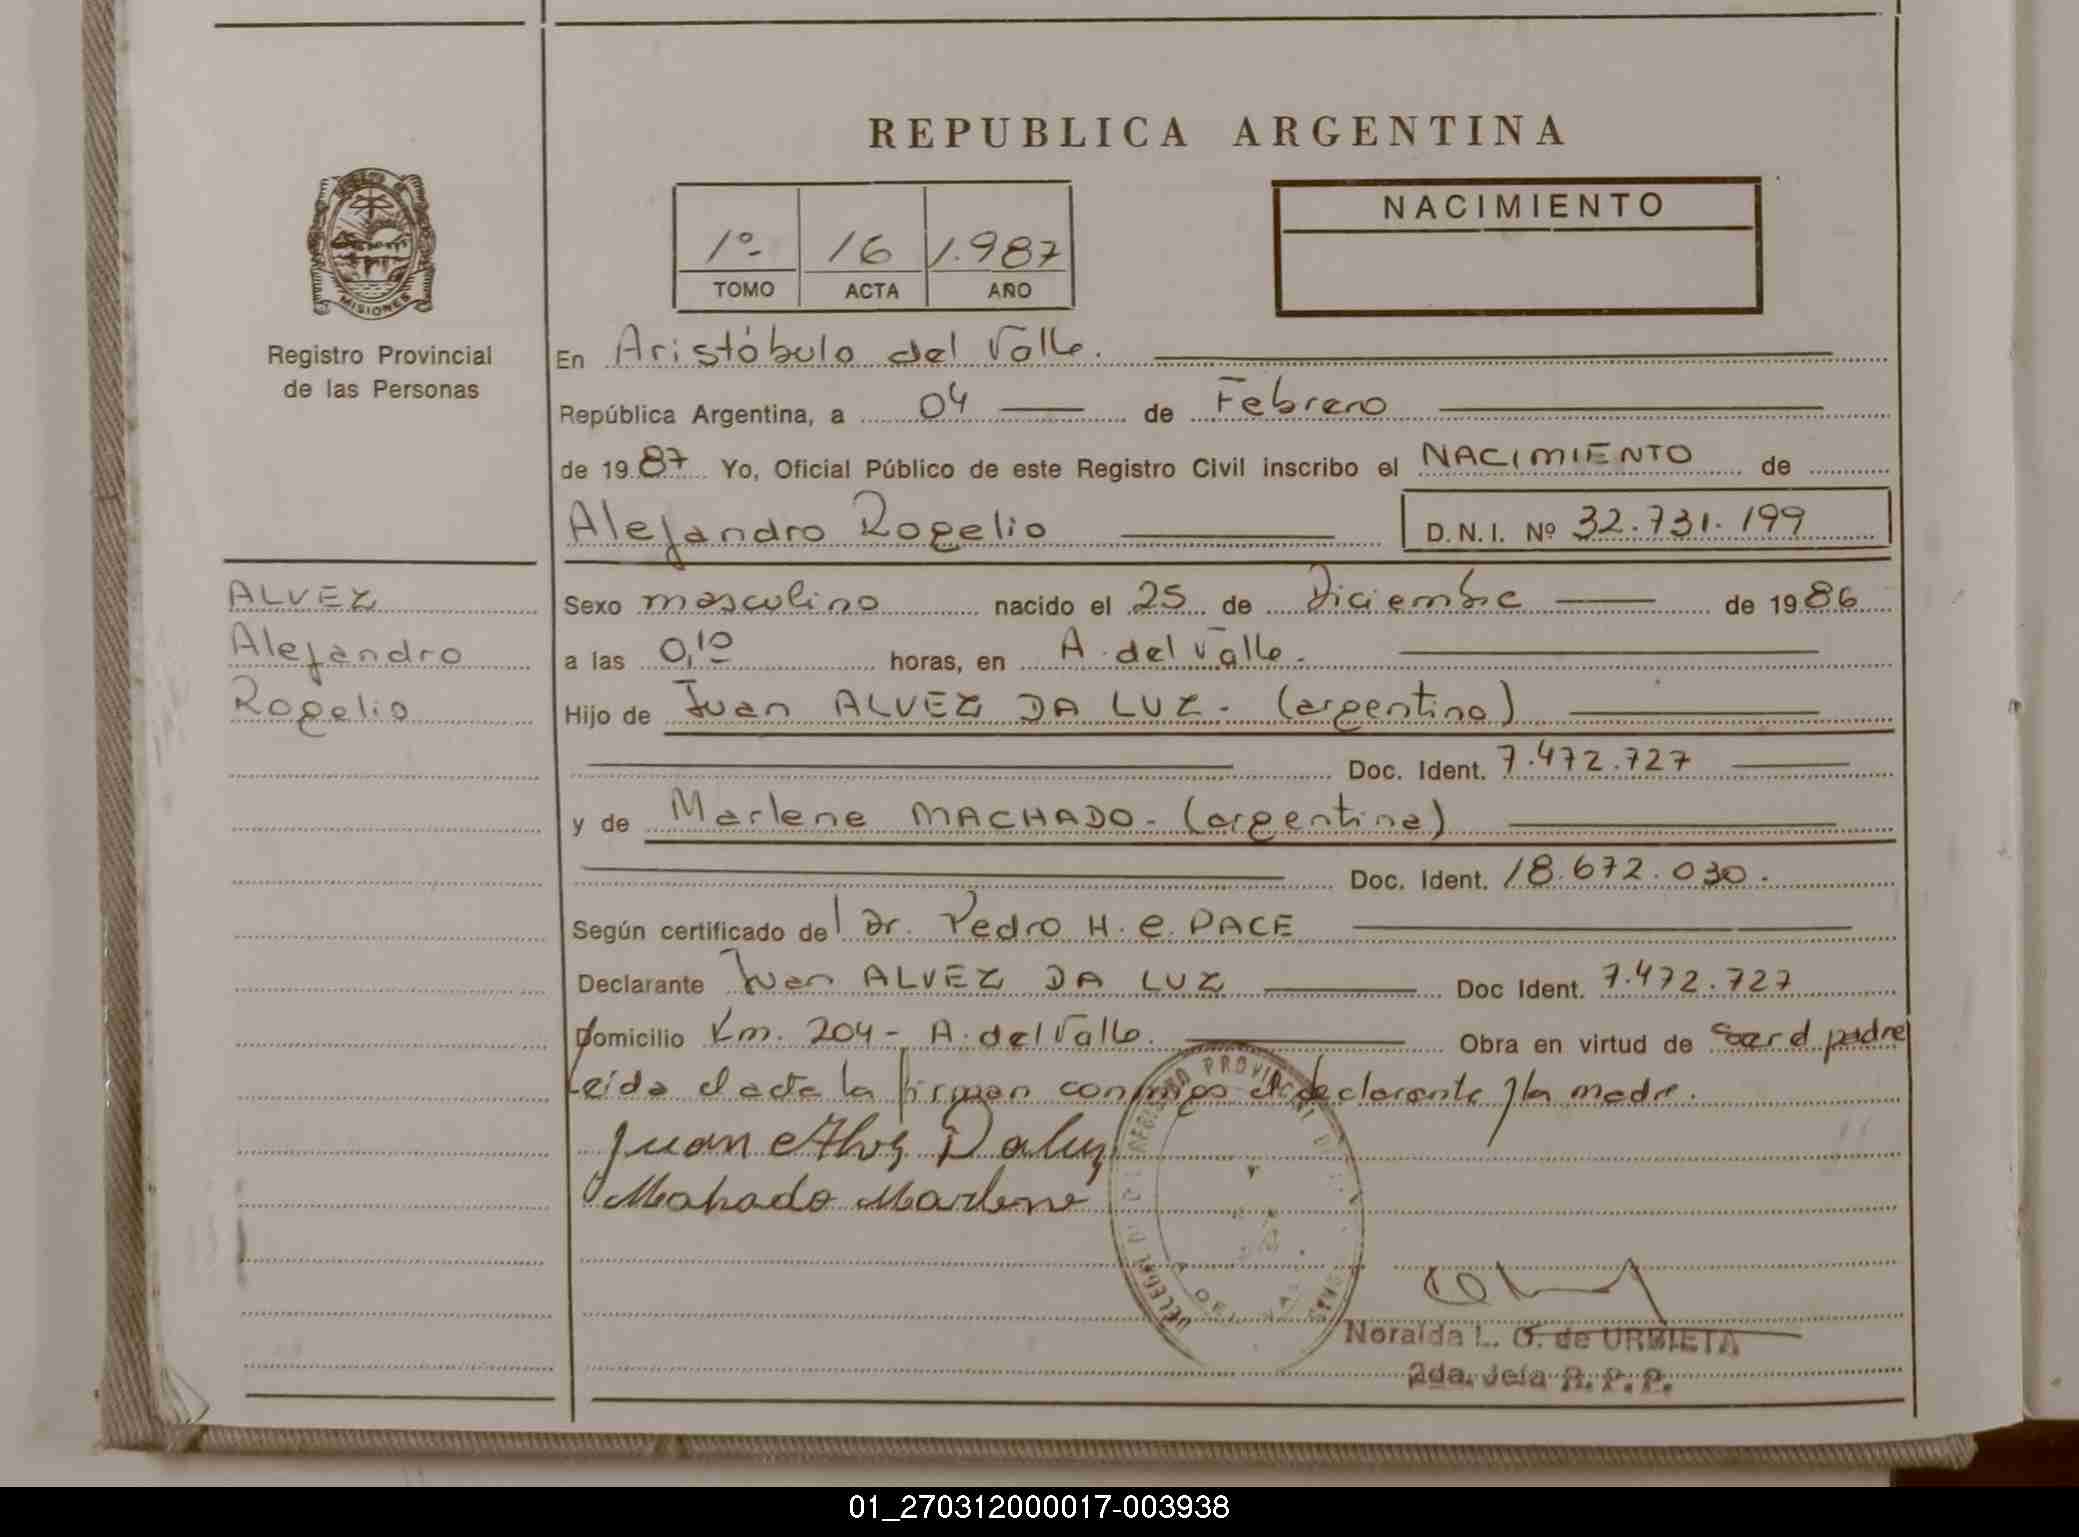 REPUBLICA ARGENTINA
MISIONES
Registro Provincial
de las Personas
1º 16 1.987
TOMO ACTA AÑO
NACIMIENTO
En Aristóbulo del Valle.
República Argentina, a 04 de Febrero
de 1987 Yo, Oficial Público de este Registro Civil inscribo el NACIMIENTO de
Alejandro Rogelio D.N.I. Nº 32.731.199
ALVEZ
Alejandro
Rogelio
Sexo masculino nacido el 25 de Diciembre de 1986
a las 0,10 horas, en A. del Valle.
Hijo de Juan ALVEZ DA LUZ. (argentino)
Doc. Ident. 7.472.727
y de Marlene MACHADO. (argentina)
Doc. Ident. 18.672.030.
Según certificado del Dr. Pedro H. e. PACE
Declarante Juan ALVEZ DA LUZ Doc Ident. 7.472.727
Domicilio Km. 204 - A. del Valle. Obra en virtud de ser el padre
Leída el acta la firman conmigo el declarante y la madre.
Juan Alvez Daluz
Mahado Marlene
REGISTRO PROVINCIAL DE LAS
Noralda L. O. de URBIETA
2da. Jefa R. P. P.
01_270312000017-003938